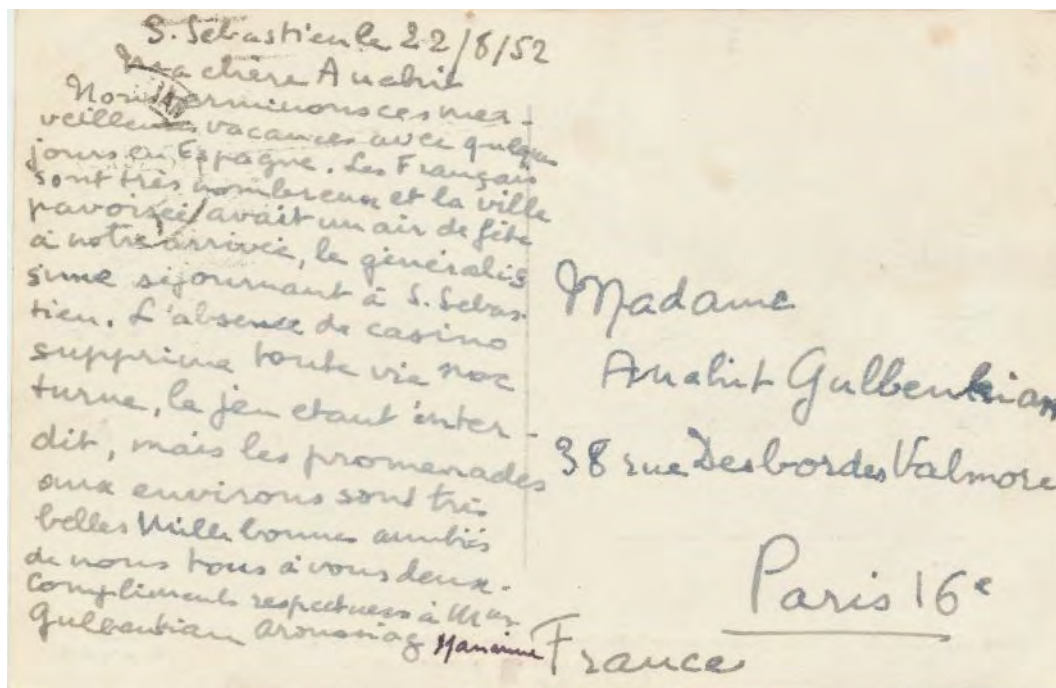 S. Sébastien le 22/8/52
Ma chère Anahit
Nous terminons ces mer-
veilleuses vacances avec quelques
jours en Espagne. Les Français
sont très nombreux et la ville
pavoisée avait un air de fête
à notre arrivée, le généralis
sime séjournant à S. Sebas-
tien. L'absence de casino
supprime toute vie noc
turne, le jeu etant inter-
dit, mais les promenades
aux environs sont très
belles Mille bonnes amitiés
de nous tous à vous deux.
Compliments respectueux à Mme
Gulbenkian Aroussiag
Madame
Anahit Gulbenkian
38 rue Desbordes Valmore
Paris 16e
France